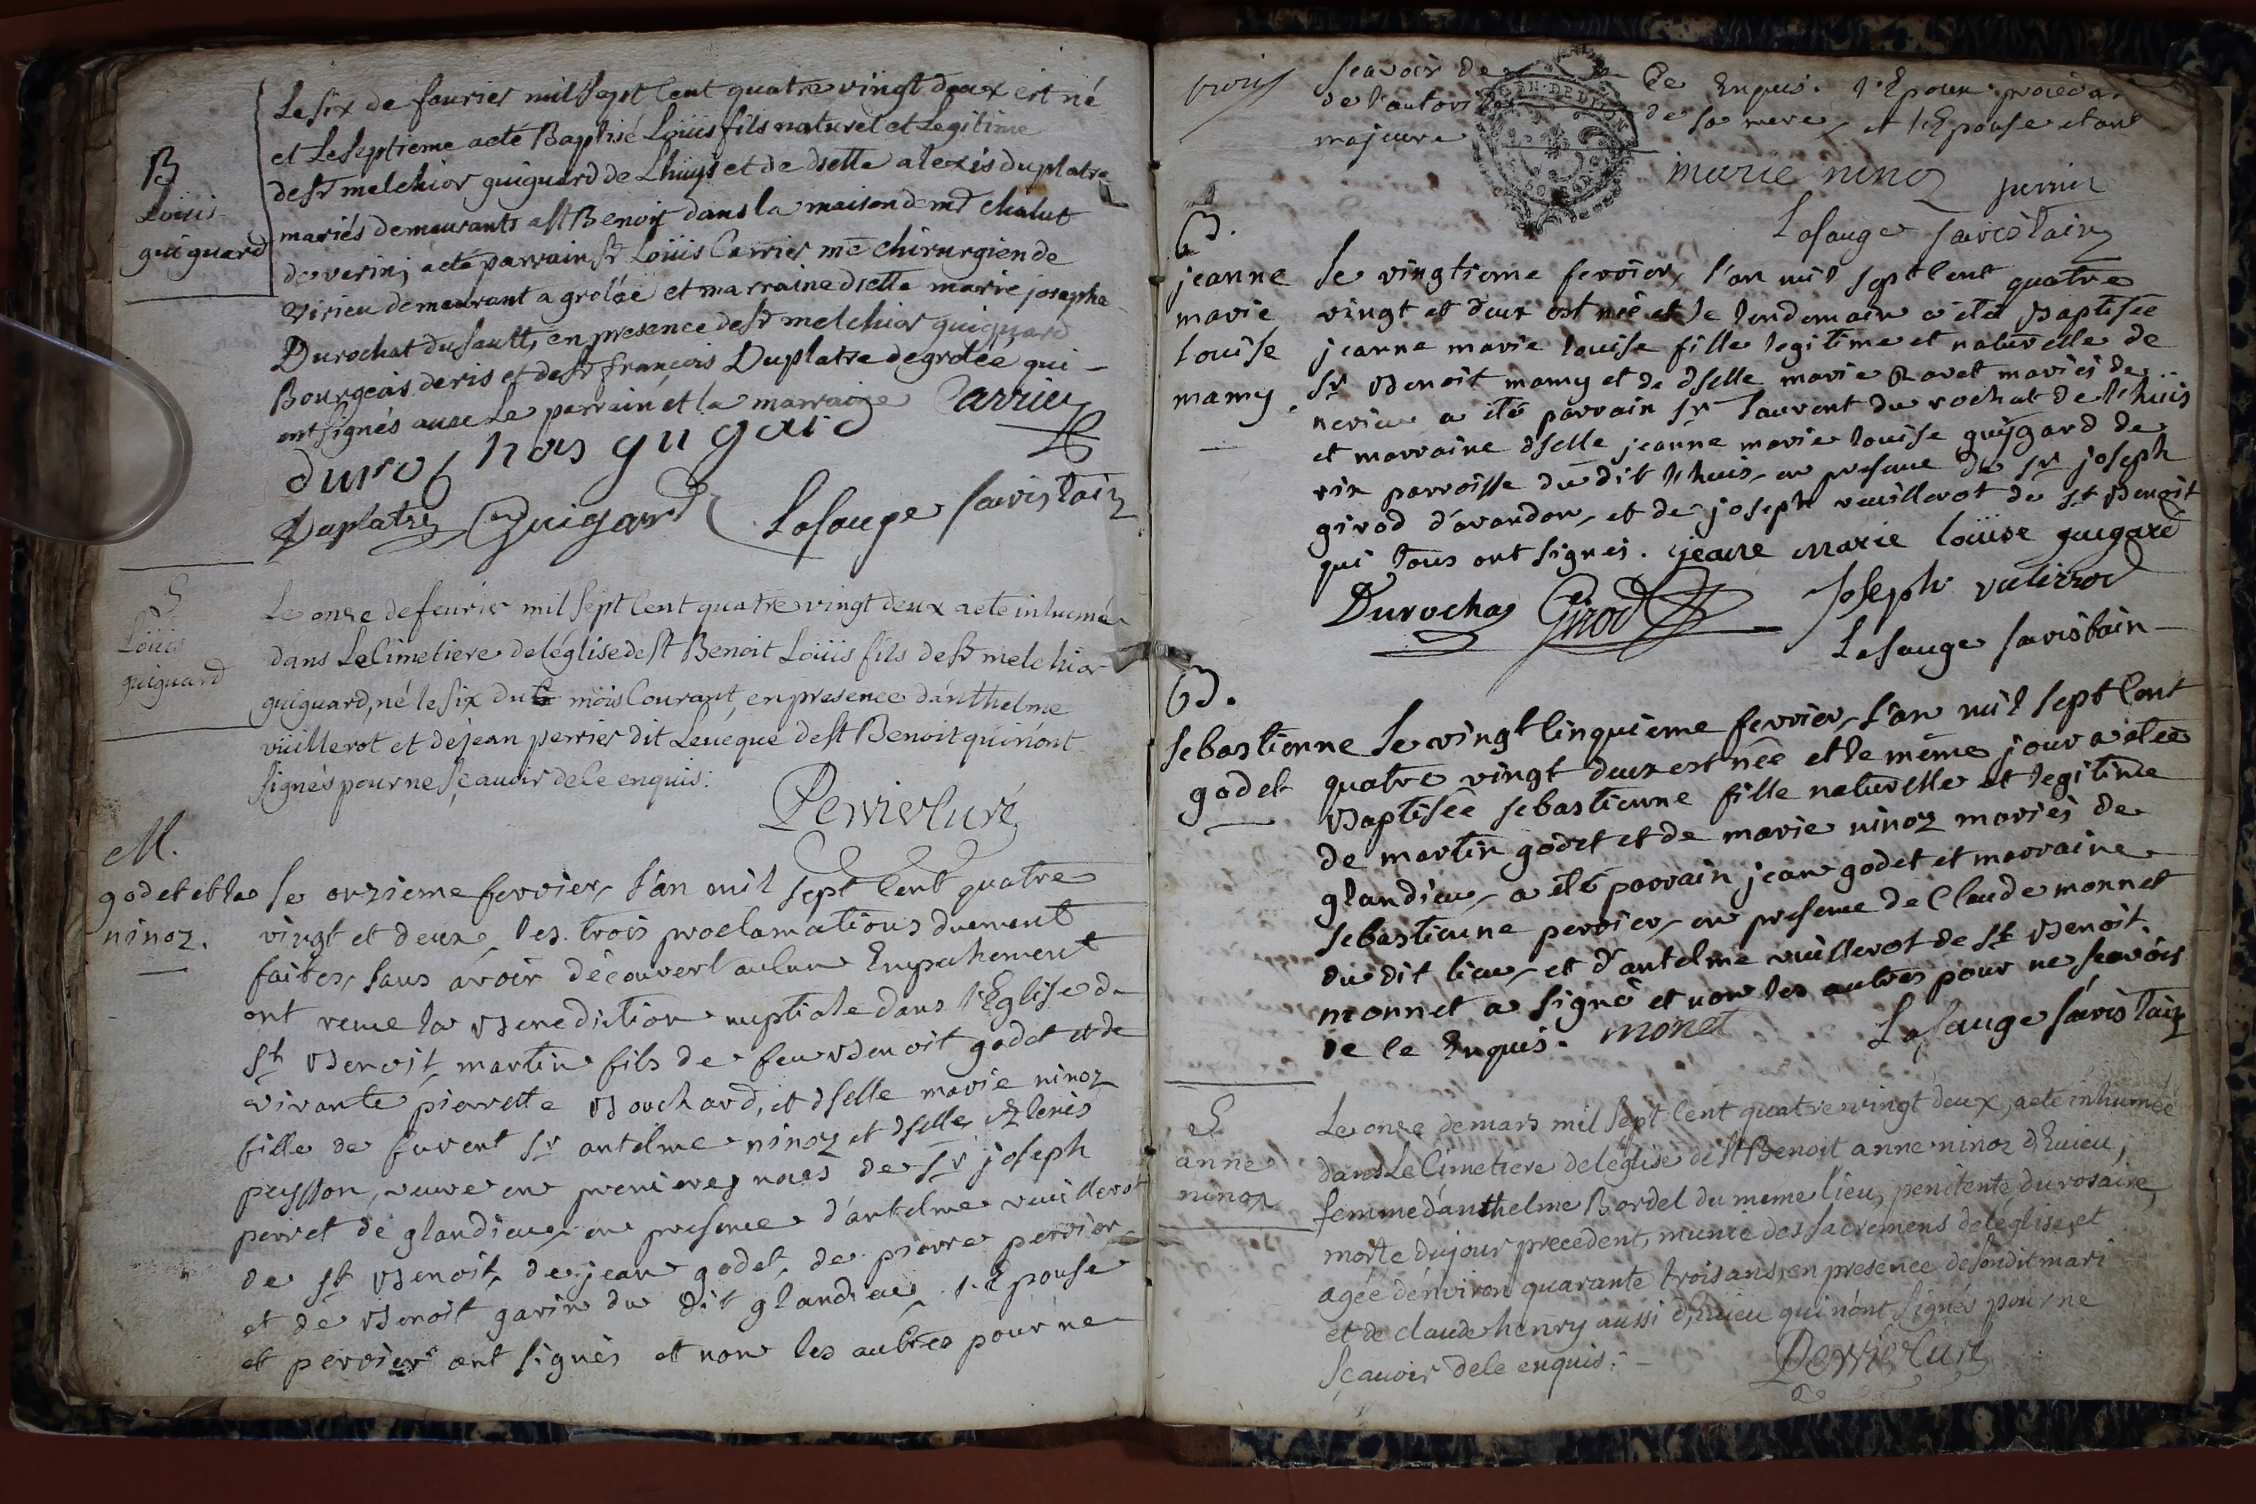 B
Loüis
guiguard
Le six de fevrier mil sept Cent quatre vingt deux est né
et Le septieme a eté Baptisé Loüis fils naturel et Legitime
de sr melchior guiguard de Lhuys et de dselle alexis duplatre
mariés demeurants a st Benoit dans la maison de mr chalut
de verin; a eté parrain sr Loüis Carrier me chirurgien de
virieu demeurant a groleé et marraine dselle marie josepha
Durochat du sault, en presence de sr melchior guiguard
Bourgeois de ris et de sr françois Duplatre de grolée qui
ont signés avec Le parrain et la marraine Carrier
duroch
Duplatre Guigard Lasauge sacristain
S
Loüis
guiguard
Le onze de fevrier mil sept Cent quatre vingt deux a eté inhumé
dans Le Cimetiere de léglise de st Benoit Loüis fils de sr melchior
guiguard, né le six du mois Courant, en presence d'anthelme
vüillerot et de jean perrier dit Levêque de st Benoit qui n'ont
signés pour ne sçavoir de Ce enquis.
Perrier Curé
M.
godet et la
ninoz.
Le onzieme fevrier, l'an mil sept Cent quatre
vingt et deux, les trois proclamations duement
faites, sans avoir découvert aucun Empechement
ont reçue la Benediction nuptiale dans l'Eglise de
st Benoit, martin fils de feu Benoit godet et de
vivante pierrette Bouchard, et dselle marie ninoz
fille de furent sr antelme ninoz et dselle
veuve en premieres noces de sr joseph
perret de glandieu, en presence d'antelme vuillerot
de st Benoit, de jean godet, de pierre perrier
et de Benoit garin du dit glandieu. l'Epouse
et perrier ont signés et non les autres pour ne
sçavoir de Ce Enquis. l'Epoux
de l'autorité de sa mere, et l'Epouse etant
majeure
marie ninoz perrier
Lasauge sacristain
B.
jeanne
marie
louise
mamy.
Le vingtieme fevrier, l'an mil sept Cent quatre
vingt et deux est née et le lendemain a été Baptisée
jeanne marie louise fille legitime et naturelle de
sr Benoit mamy et de dselle marie Ravet mariés de
nerieu a été parrain sr laurent du rochat de l'huis
et marraine dselle jeanne marie louise guygard de
rix parroisse du dit l'huis, en presence de sr joseph
girod d'arandon, et de joseph vuillerot de st Benoit
qui tous ont signés. jeane marie loüise guigard
Durochat Girod Joseph vulierrod
Lasauge sacristain
B.
Sebastienne
godet
Le vingt Cinquieme fevrier, l'an mil sept Cent
quatre vingt deux est née et le même jour a eté
Baptisée sebastienne fille naturelle et legitime
de martin godet et de marie ninoz mariés de
glandieu, a été parrain jean godet et marraine
sebastienne perrier, en presence de Claude monnet
du dit lieu, et d'antelme vuillerot de st Benoit.
monnet a signé et non les autres pour ne scavoir
de Ce Enquis. monet Lasauge sacristain
S
anne
ninoz
Le onze de mars mil sept Cent quatre vingt deux, a eté inhumée
dans Le Cimetiere de léglise de st Benoit anne ninoz d'Evieu,
femme d'anthelme Bordel du meme lieu, penitente du rosaire,
morte du jour precedent, munie des sacremens de l'église, et
agée d'environ quarante trois ans, en presence de son dit mari
et de claude henry aussi d'Evieu qui n'ont signés pour ne
sçavoir de Ce enquis.
Perrier Curé